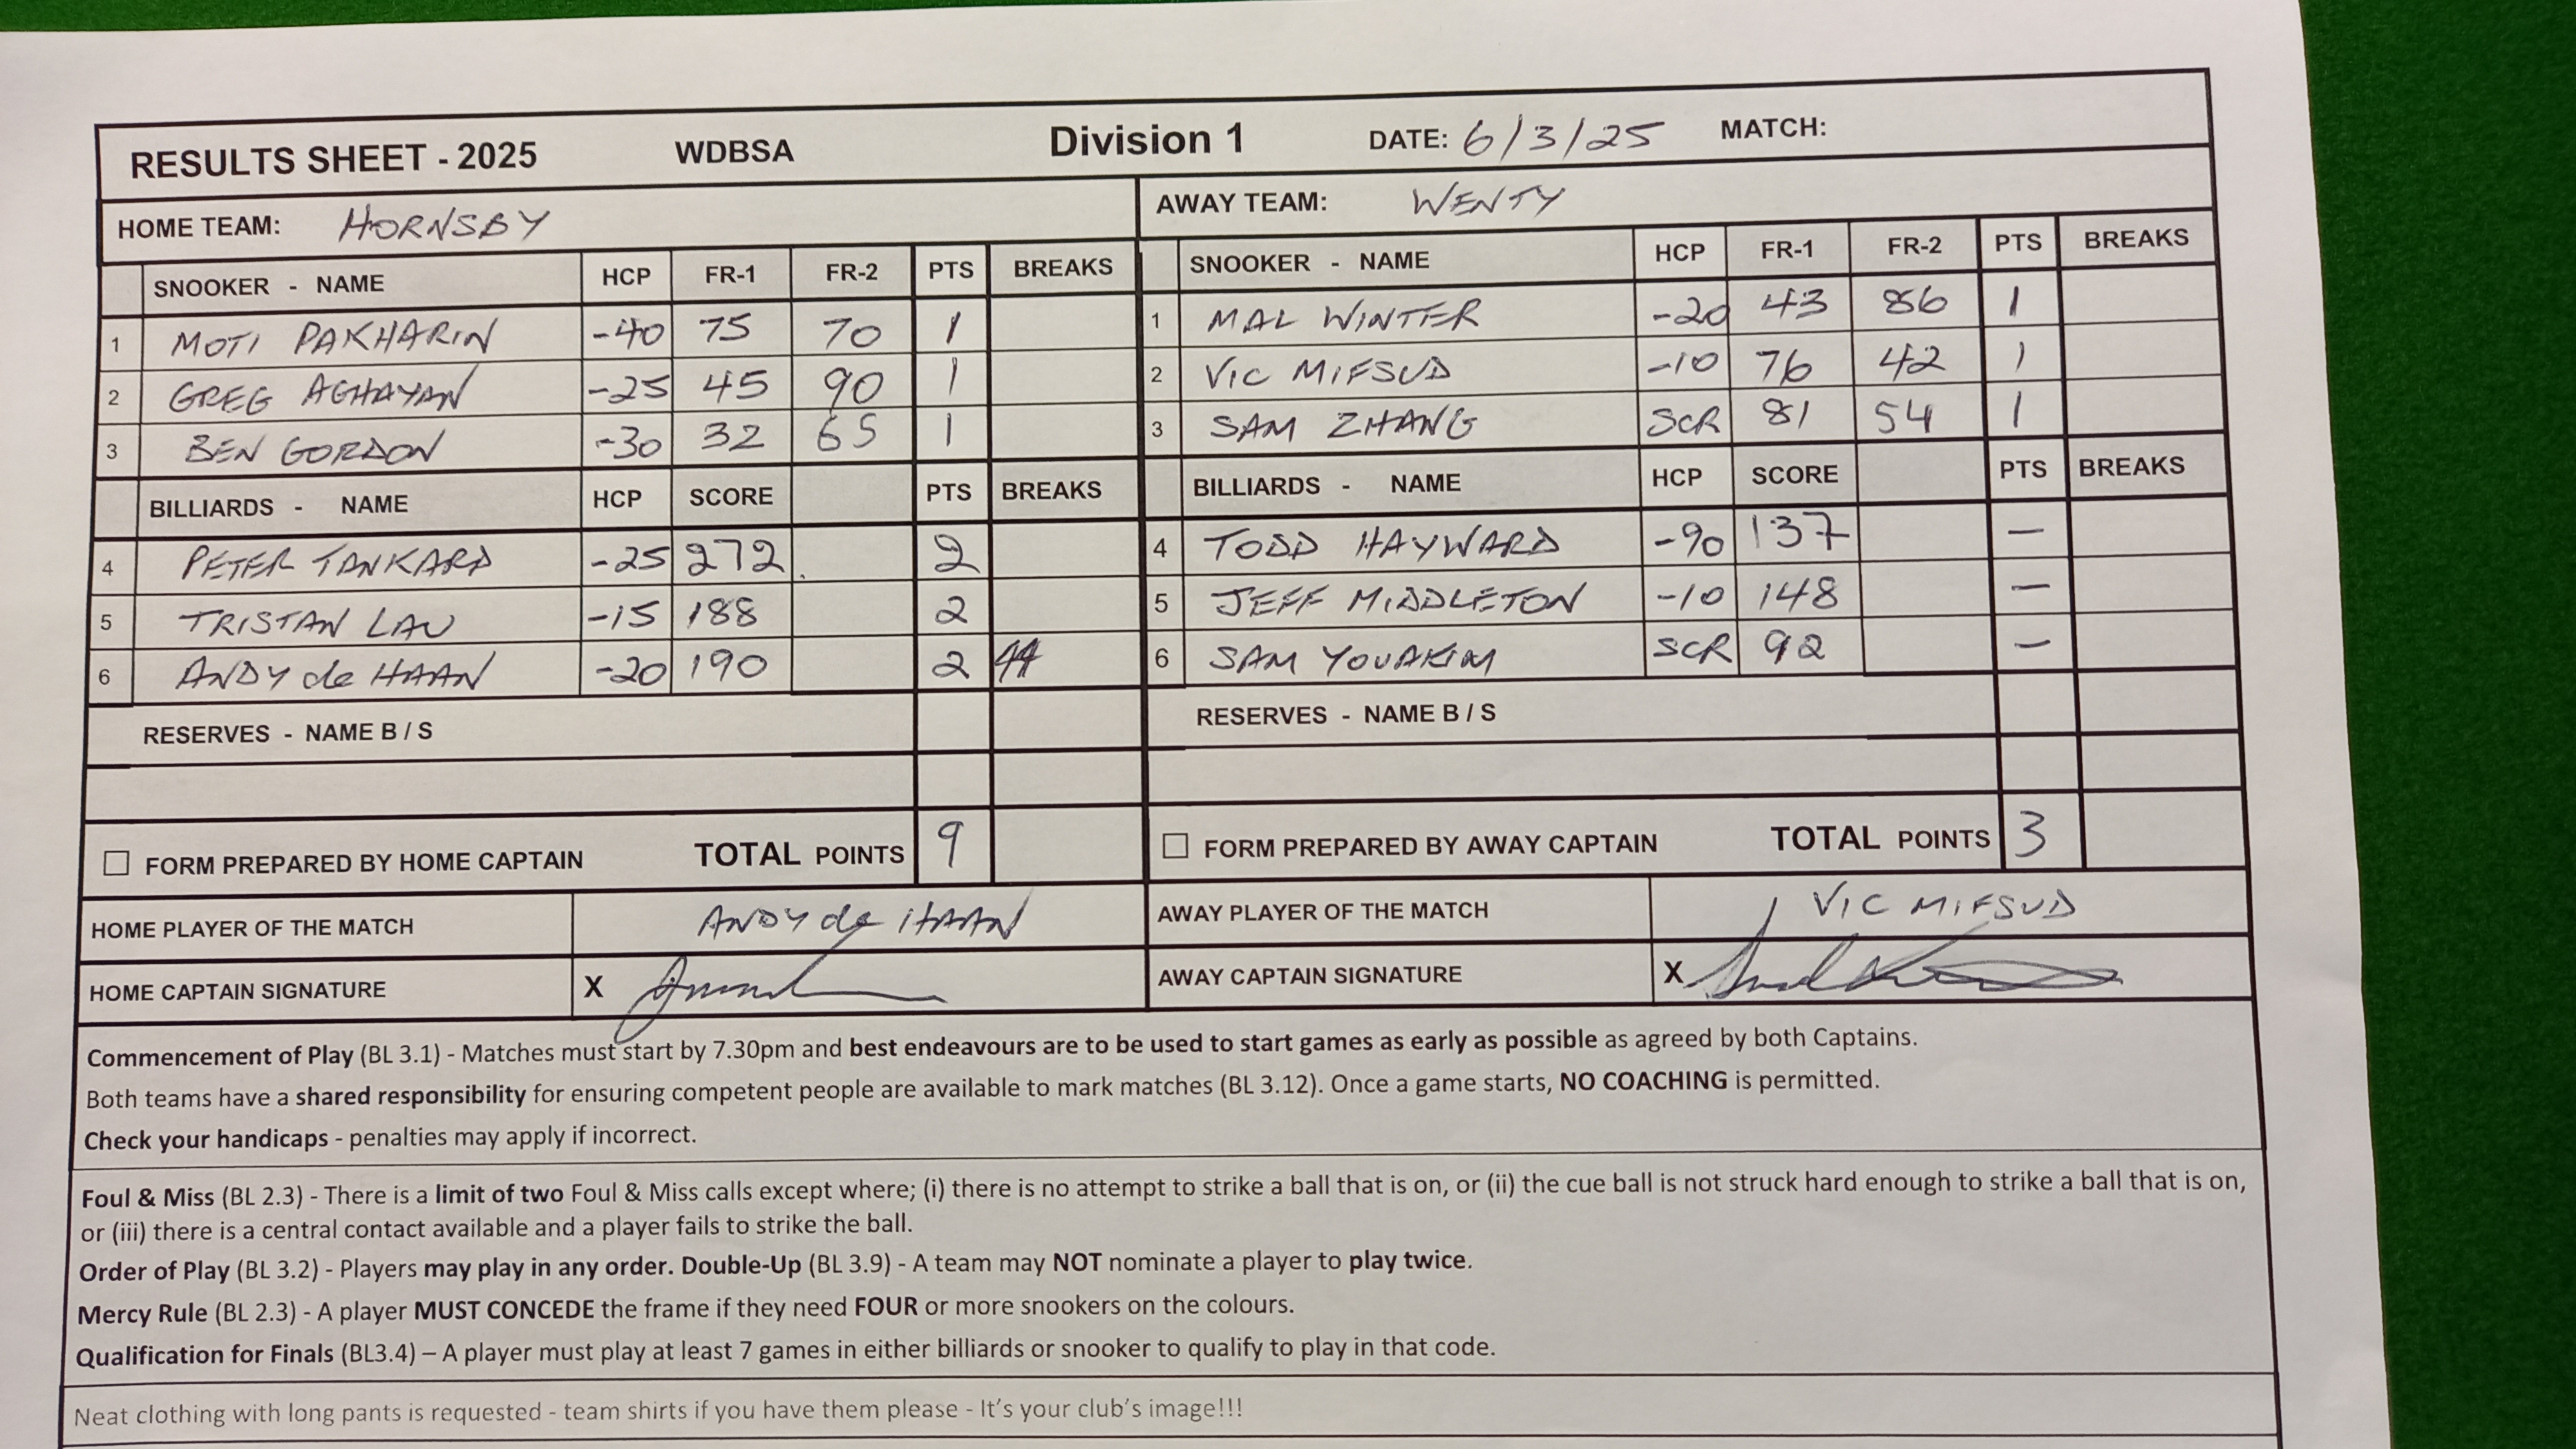 RESULTS SHEET - 2025 WDBSA Division 1 DATE: 6/3/25 MATCH:
HOME TEAM: HORNSBY AWAY TEAM: WENTY
SNOOKER - NAME HCP FR-1 FR-2 PTS BREAKS SNOOKER - NAME HCP FR-1 FR-2 PTS BREAKS
1 MOTI PAKHARIN -40 75 70 1 1 MAL WINTER -20 43 86 1
2 GREG AGHAYAN -25 45 90 1 2 VIC MIFSUD -10 76 42 1
3 BEN GORDON -30 32 65 1 3 SAM ZHANG SCR 81 54 1
BILLIARDS - NAME HCP SCORE PTS BREAKS BILLIARDS - NAME HCP SCORE PTS BREAKS
4 PETER TANKARD -25 272 2 4 TODD HAYWARD -90 137 —
5 TRISTAN LAU -15 188 2 5 JEFF MIDDLETON -10 148 —
6 ANDY de HAAN -20 190 2 6 SAM YOUAKIM SCR 92 —
RESERVES - NAME B / S RESERVES - NAME B / S
☐ FORM PREPARED BY HOME CAPTAIN TOTAL POINTS 9 ☐ FORM PREPARED BY AWAY CAPTAIN TOTAL POINTS 3
HOME PLAYER OF THE MATCH ANDY de HAAN AWAY PLAYER OF THE MATCH VIC MIFSUD
HOME CAPTAIN SIGNATURE X AWAY CAPTAIN SIGNATURE X
Commencement of Play (BL 3.1) - Matches must start by 7.30pm and best endeavours are to be used to start games as early as possible as agreed by both Captains.
Both teams have a shared responsibility for ensuring competent people are available to mark matches (BL 3.12). Once a game starts, NO COACHING is permitted.
Check your handicaps - penalties may apply if incorrect.
Foul & Miss (BL 2.3) - There is a limit of two Foul & Miss calls except where; (i) there is no attempt to strike a ball that is on, or (ii) the cue ball is not struck hard enough to strike a ball that is on,
or (iii) there is a central contact available and a player fails to strike the ball.
Order of Play (BL 3.2) - Players may play in any order. Double-Up (BL 3.9) - A team may NOT nominate a player to play twice.
Mercy Rule (BL 2.3) - A player MUST CONCEDE the frame if they need FOUR or more snookers on the colours.
Qualification for Finals (BL3.4) – A player must play at least 7 games in either billiards or snooker to qualify to play in that code.
Neat clothing with long pants is requested - team shirts if you have them please - It's your club's image!!!